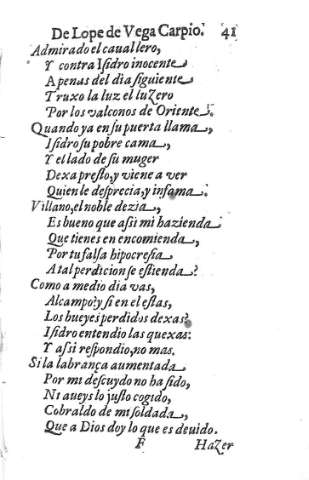 De Lope de Vega Carpio. 41
Admirado el cauallero,
Y contra Isidro inocente
Apenas del dia siguiente
Truxo la luz el luZero
Por los valcones de Oriente.
Quando ya en su puerta llama,
Isidro su pobre cama,
Y el lado de su muger
Dexa presto, y viene a ver
Quien le desprecia, y infama.
Villano, el noble dezia,
Es bueno que assi mi hazienda
Que tienes en encomienda,
Por tu falsa hipocresia
A tal perdicion se estienda?
Como a medio dia vas,
Al campo? y si en el estas,
Los bueyes perdidos dexas?
Isidro entendio las quexas:
Y assi respondio, no mas.
Si la labrança aumentada
Por mi descuydo no ha sido,
Ni aueys lo justo cogido,
Cobraldo de mi soldada,
Que a Dios doy lo que es deuido.
F HaZer